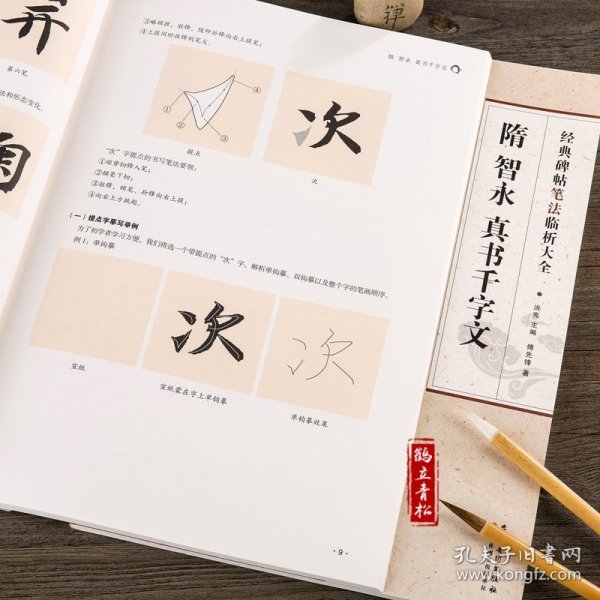 第六笔
法和形态变化。
③略顿按，驻锋，随即折锋向右上提笔；
④上提同时收锋到笔尖。
隋 智永 真书千字文
①
②
③
④
提点
次
次
“次”字提点的书写笔法要领：
①顺势切锋入笔；
②铺毫下切；
③驻锋，顿笔，折锋向右上提；
④向右上方挑起。
（一）提点字摹写举例
为了初学者学习方便，我们将选一个带提点的“次”字，解析单钩摹、双钩摹以及整个字的笔画顺序。
例1：单钩摹
次
次
宣纸
宣纸蒙在字上单钩摹
单钩摹效果
·9·
禅
经典碑帖笔法临析大全
隋 智永 真书千字文
洪亮 主编 傅先锋 著
鹤立青松
孔夫子旧书网
www.kongfz.com